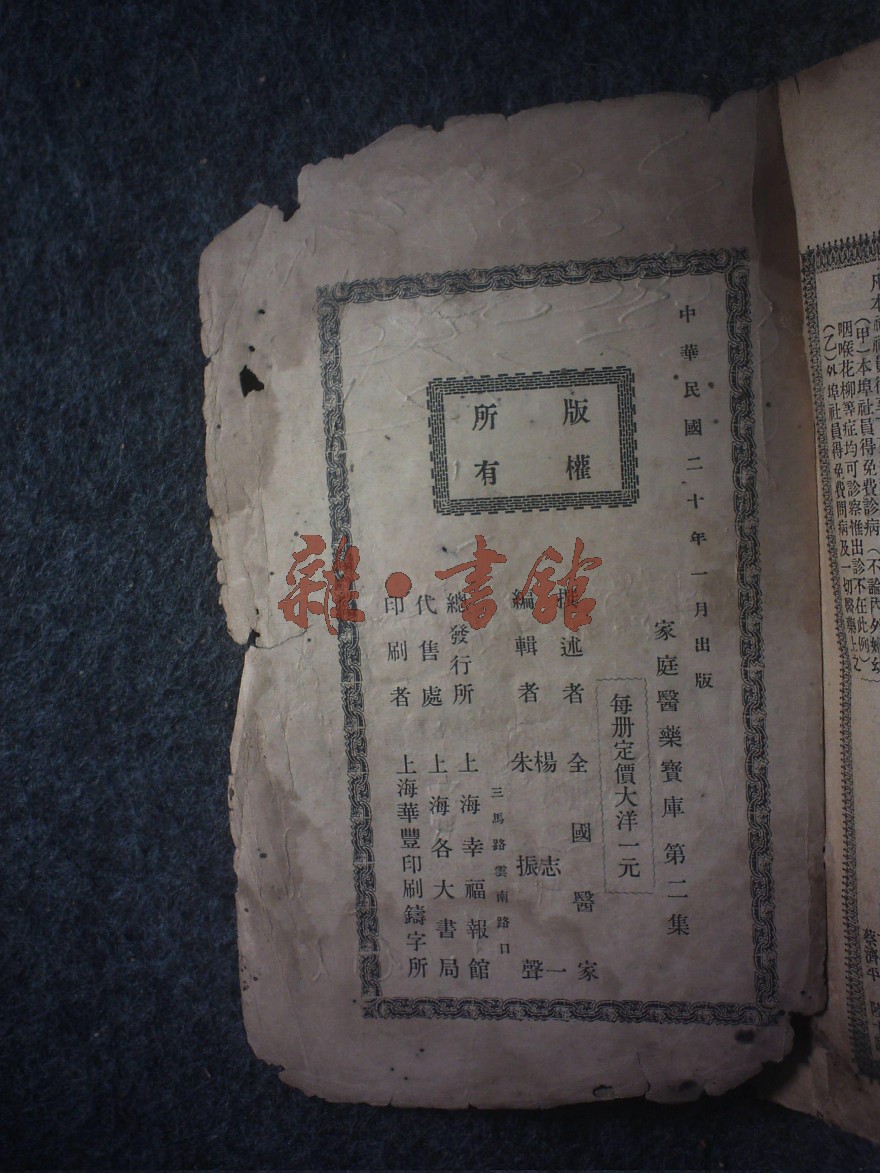 中華民國二十年一月出版
版權
所有
家庭醫藥寶庫第二集
每册定價大洋一元
撰述者 全國醫家
編輯者 楊志一
朱振聲
三馬路雲南路口
總發行所 上海幸福報館
代售處 上海各大書局
印刷者 上海華豐印刷鑄字所
雜·書館
(甲)本埠社員得免費診病(不論內外婦幼
咽喉花柳等症均可診察惟出診不在此例)
(乙)外埠社員得免費問病及一切醫藥上之
蔡濟平